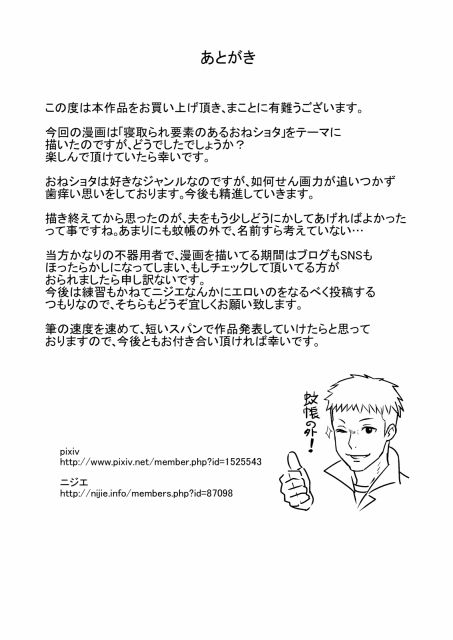 あとがき
この度は本作品をお買い上げ頂き、まことに有難うございます。
今回の漫画は「寝取られ要素のあるおねショタ」をテーマに
描いたのですが、どうでしたでしょうか？
楽しんで頂けていたら幸いです。
おねショタは好きなジャンルなのですが、如何せん画力が追いつかず
歯痒い思いをしております。今後も精進していきます。
描き終えてから思ったのが、夫をもう少しどうにかしてあげればよかった
って事ですね。あまりにも蚊帳の外で、名前すら考えていない…
当方かなりの不器用者で、漫画を描いてる期間はブログもSNSも
ほったらかしになってしまい、もしチェックして頂いてる方が
おられましたら申し訳ないです。
今後は練習もかねてニジエなんかにエロいのをなるべく投稿する
つもりなので、そちらもどうぞ宜しくお願い致します。
筆の速度を速めて、短いスパンで作品発表していけたらと思って
おりますので、今後ともお付き合い頂ければ幸いです。
蚊帳の外！
pixiv
http://www.pixiv.net/member.php?id=1525543
ニジエ
http://nijie.info/members.php?id=87098